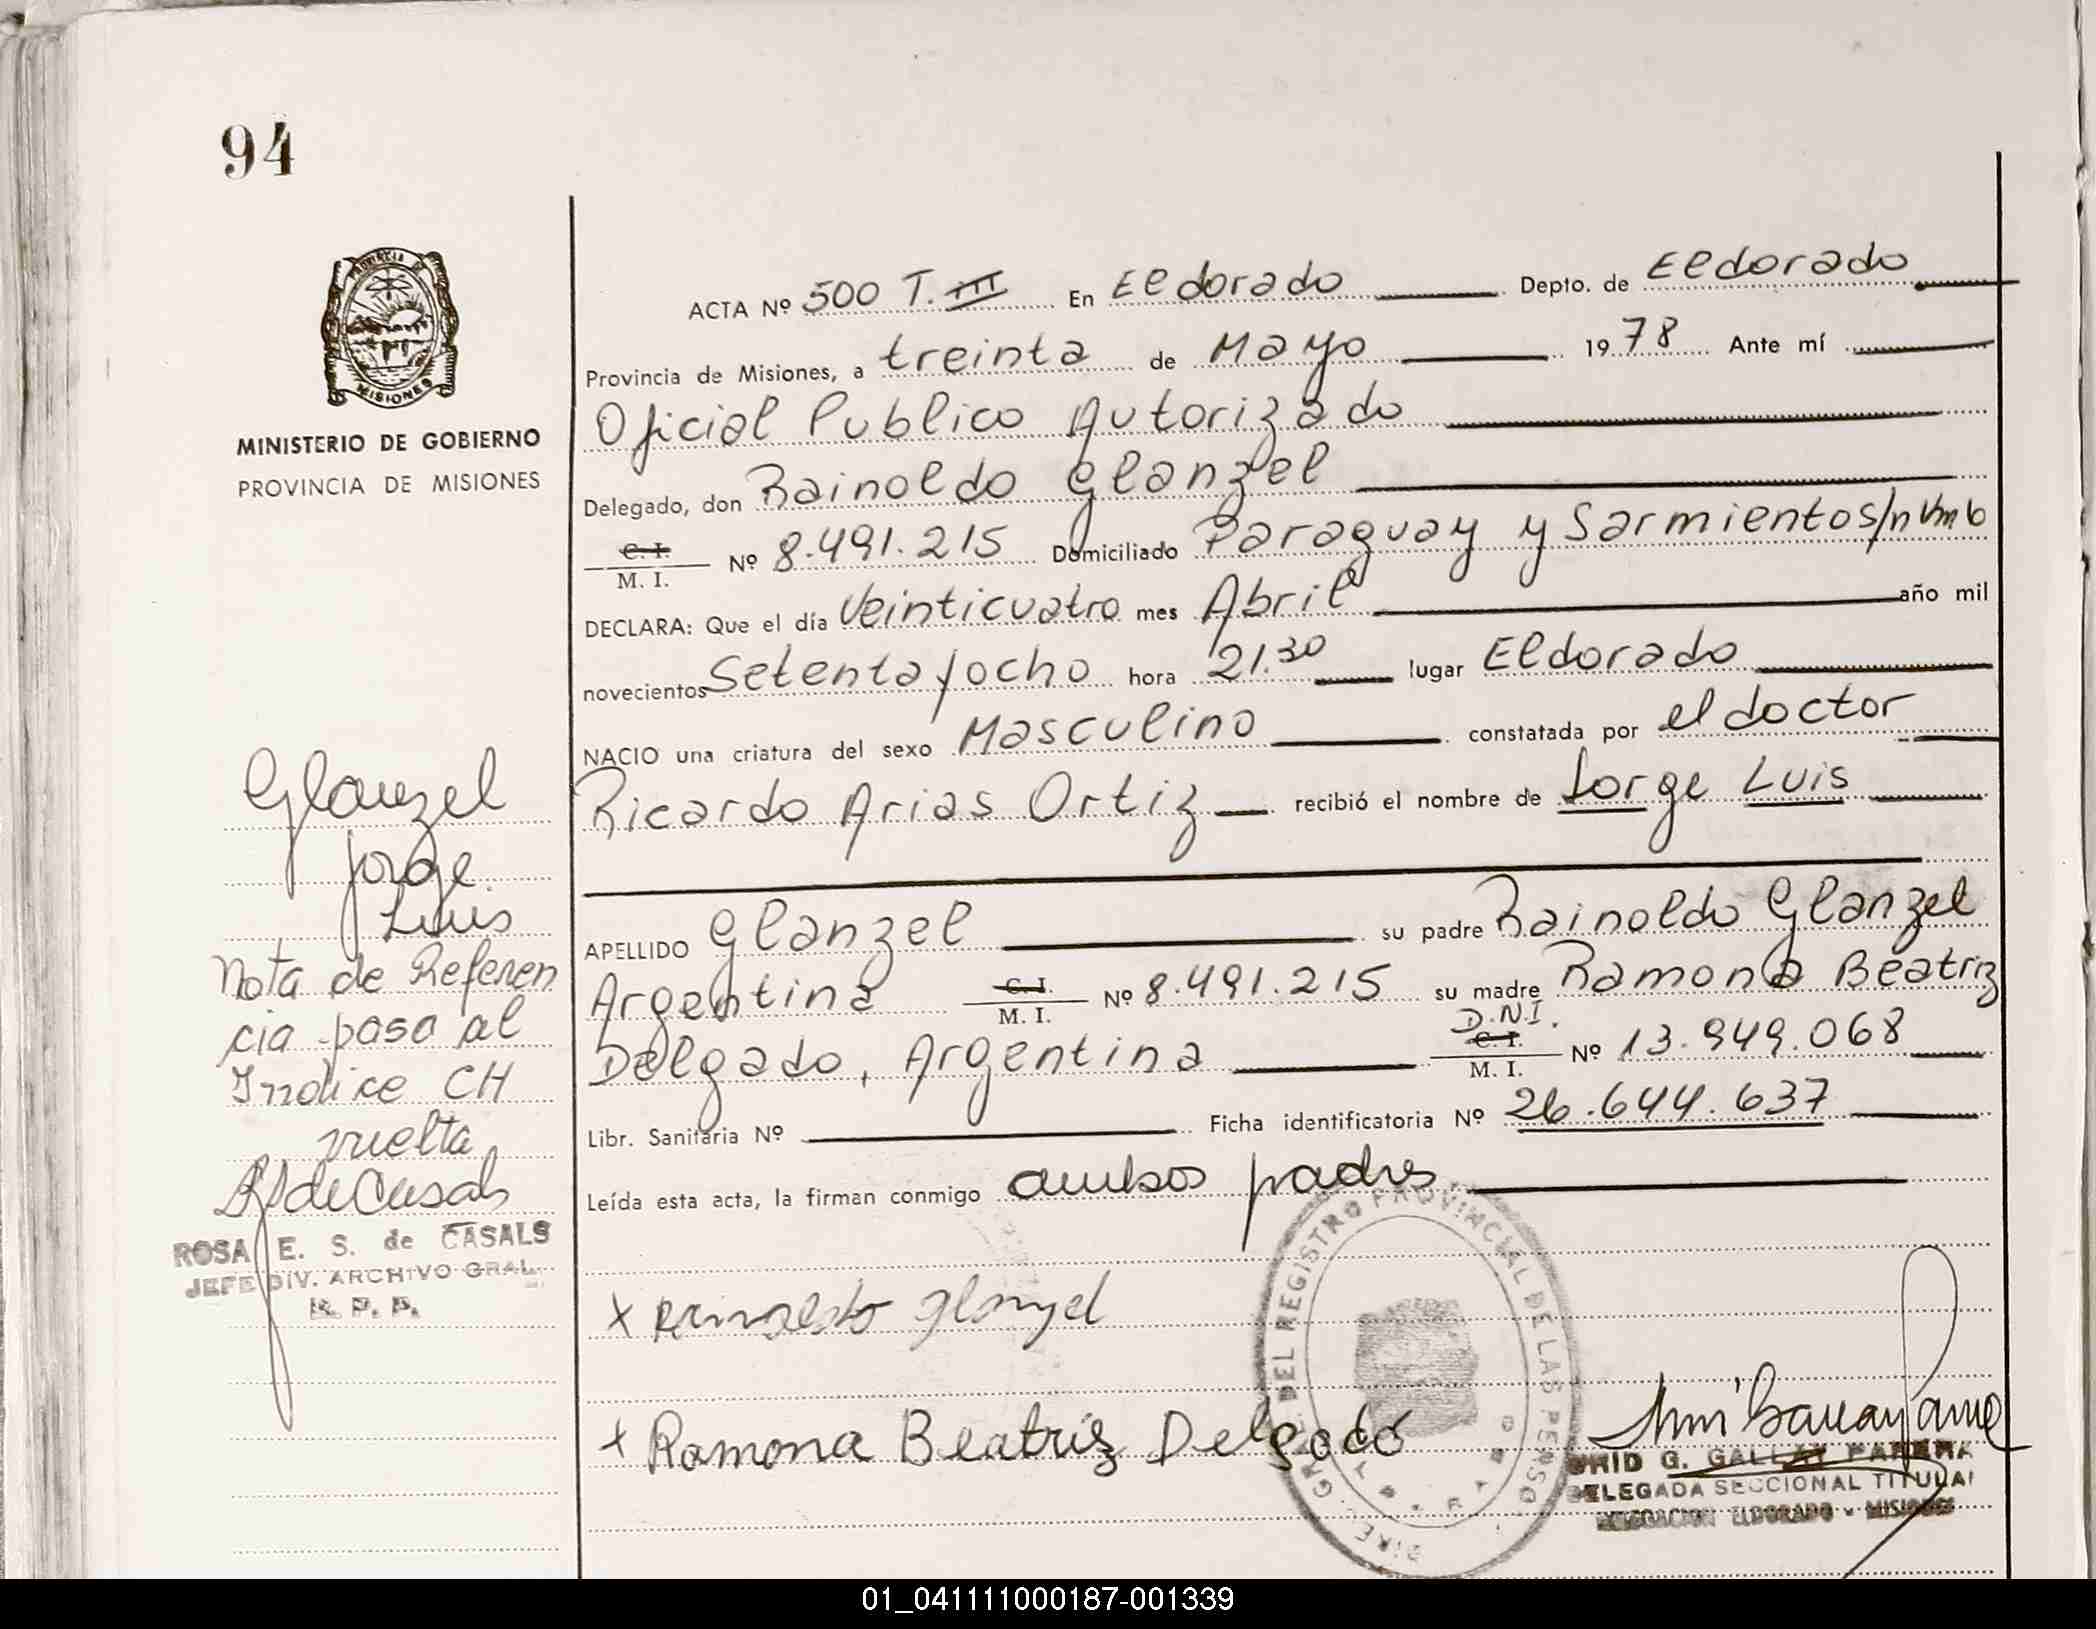 94
PROVINCIA DE
MISIONES
MINISTERIO DE GOBIERNO
PROVINCIA DE MISIONES
ACTA Nº 500 T. III En Eldorado Depto. de Eldorado
Provincia de Misiones, a treinta de Mayo 1978 Ante mí
Oficial Publico Autorizado
Delegado, don Rainoldo Glanzel
C. I. M. I. Nº 8.491.215 Domiciliado Paraguay y Sarmiento s/n
DECLARA: Que el día Veinticuatro mes Abril año mil
novecientos Setenta y ocho hora 21.30 lugar Eldorado
NACIO una criatura del sexo Masculino constatada por el doctor
Ricardo Arias Ortiz recibió el nombre de Jorge Luis
APELLIDO Glanzel su padre Rainoldo Glanzel
Argentina C. I. M. I. Nº 8.491.215 su madre Ramona Beatriz
Delgado, Argentina D.N.I. C. I. M. I. Nº 13.949.068
Libr. Sanitaria Nº Ficha identificatoria Nº 26.644.637
Leída esta acta, la firman conmigo ambos padres
x Rainoldo Glanzel
x Ramona Beatriz Delgado
Glanzel
Jorge
Luis
Nota de Referen
cia paso al
Indice CH
vuelta
RSdeCasals
ROSA E. S. de CASALS
JEFE DIV. ARCHIVO GRAL.
R. P. P.
DEL REGISTRO PROVINCIAL DE LAS PERSO
G. PARERA
DELEGADA SECCIONAL TITULAR
DELEGACION ELDORADO - MISIONES
01_041111000187-001339